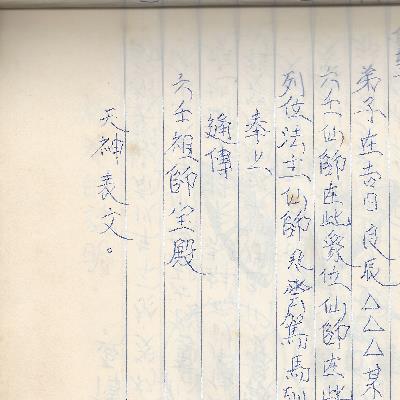 弟子在吉日良辰△△△某
六壬仙師在此眾位仙師在此
列位法主仙師
奉上
通傳
六壬祖師宝殿
天神表文。